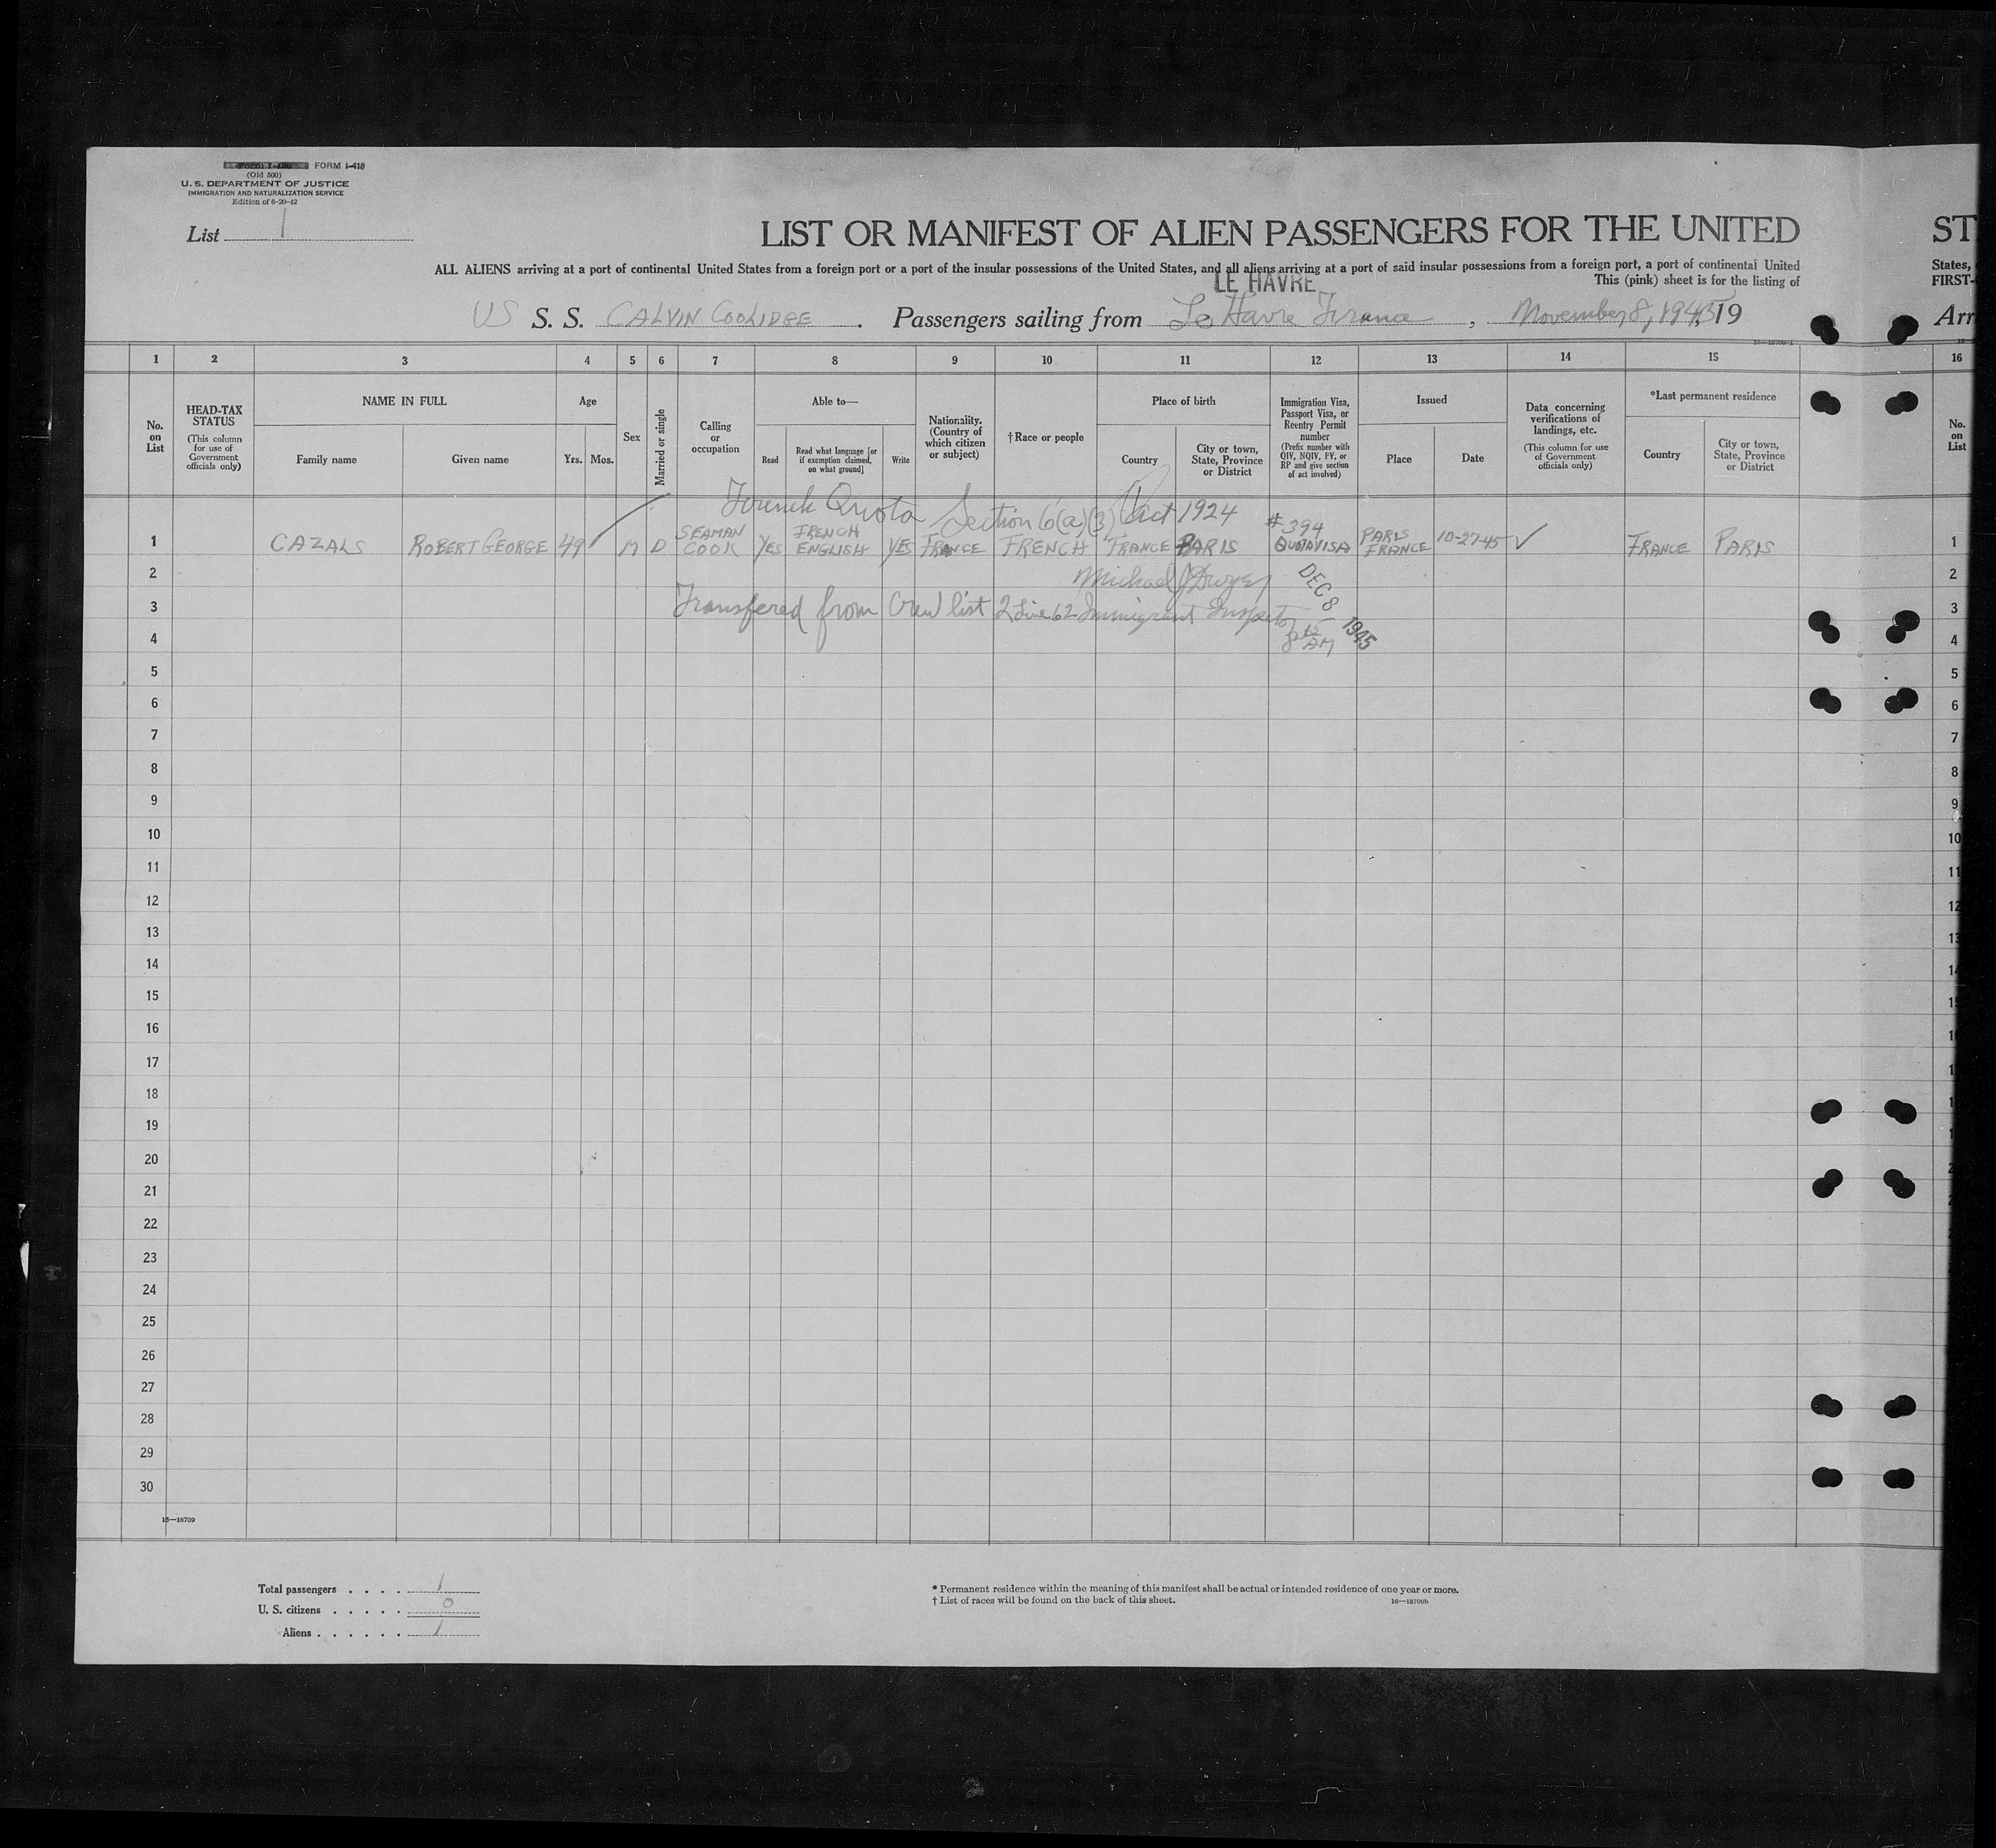 Form I-400 FORM I-415
(Old 500)
U. S. DEPARTMENT OF JUSTICE
IMMIGRATION AND NATURALIZATION SERVICE
Edition of 6-20-42
List 1
LIST OR MANIFEST OF ALIEN PASSENGERS FOR THE UNITED ST
ALL ALIENS arriving at a port of continental United States from a foreign port or a port of the insular possessions of the United States, and all aliens arriving at a port of said insular possessions from a foreign port, a port of continental United States,
This (pink) sheet is for the listing of FIRST-
LE HAVRE
US S. S. CALVIN COOLIDGE . Passengers sailing from Le Havre France , November 8, 1945, 19 Arr
16—18709-1
1 2 3 4 5 6 7 8 9 10 11 12 13 14 15 16
No. on List
HEAD-TAX STATUS (This column for use of Government officials only)
NAME IN FULL
Family name Given name
Age
Yrs. Mos.
Sex
Married or single
Calling or occupation
Able to—
Read Read what language [or if exemption claimed, on what ground] Write
Nationality. (Country of which citizen or subject)
†Race or people
Place of birth
Country City or town, State, Province or District
Immigration Visa, Passport Visa, or Reentry Permit number (Prefix number with QIV, NQIV, PV, or RP and give section of act involved)
Issued
Place Date
Data concerning verifications of landings, etc. (This column for use of Government officials only)
*Last permanent residence
Country City or town, State, Province or District
No. on List
French Quota Section 6(a)(3) Act 1924
1 CAZALS ROBERT GEORGE 49 M D SEAMAN COOK YES FRENCH ENGLISH YES FRANCE FRENCH FRANCE PARIS #394 QUOTA VISA PARIS FRANCE 10-27-45 ✓ FRANCE PARIS 1
2 Michael J Dwyer DEC 8 1945 2
3 Transfered from Crew list 2 Line 62 Immigrant Inspector 3
4 8 15 AM 4
5 5
6 6
7 7
8 8
9 9
10 10
11 11
12 12
13 13
14 14
15 15
16 1
17 1
18 1
19 1
20 2
21 2
22
23
24
25
26
27
28
29
30
16—18709
Total passengers . . . . 1
U. S. citizens . . . . . 0
Aliens . . . . . . 1
* Permanent residence within the meaning of this manifest shall be actual or intended residence of one year or more.
† List of races will be found on the back of this sheet.
16—18709b